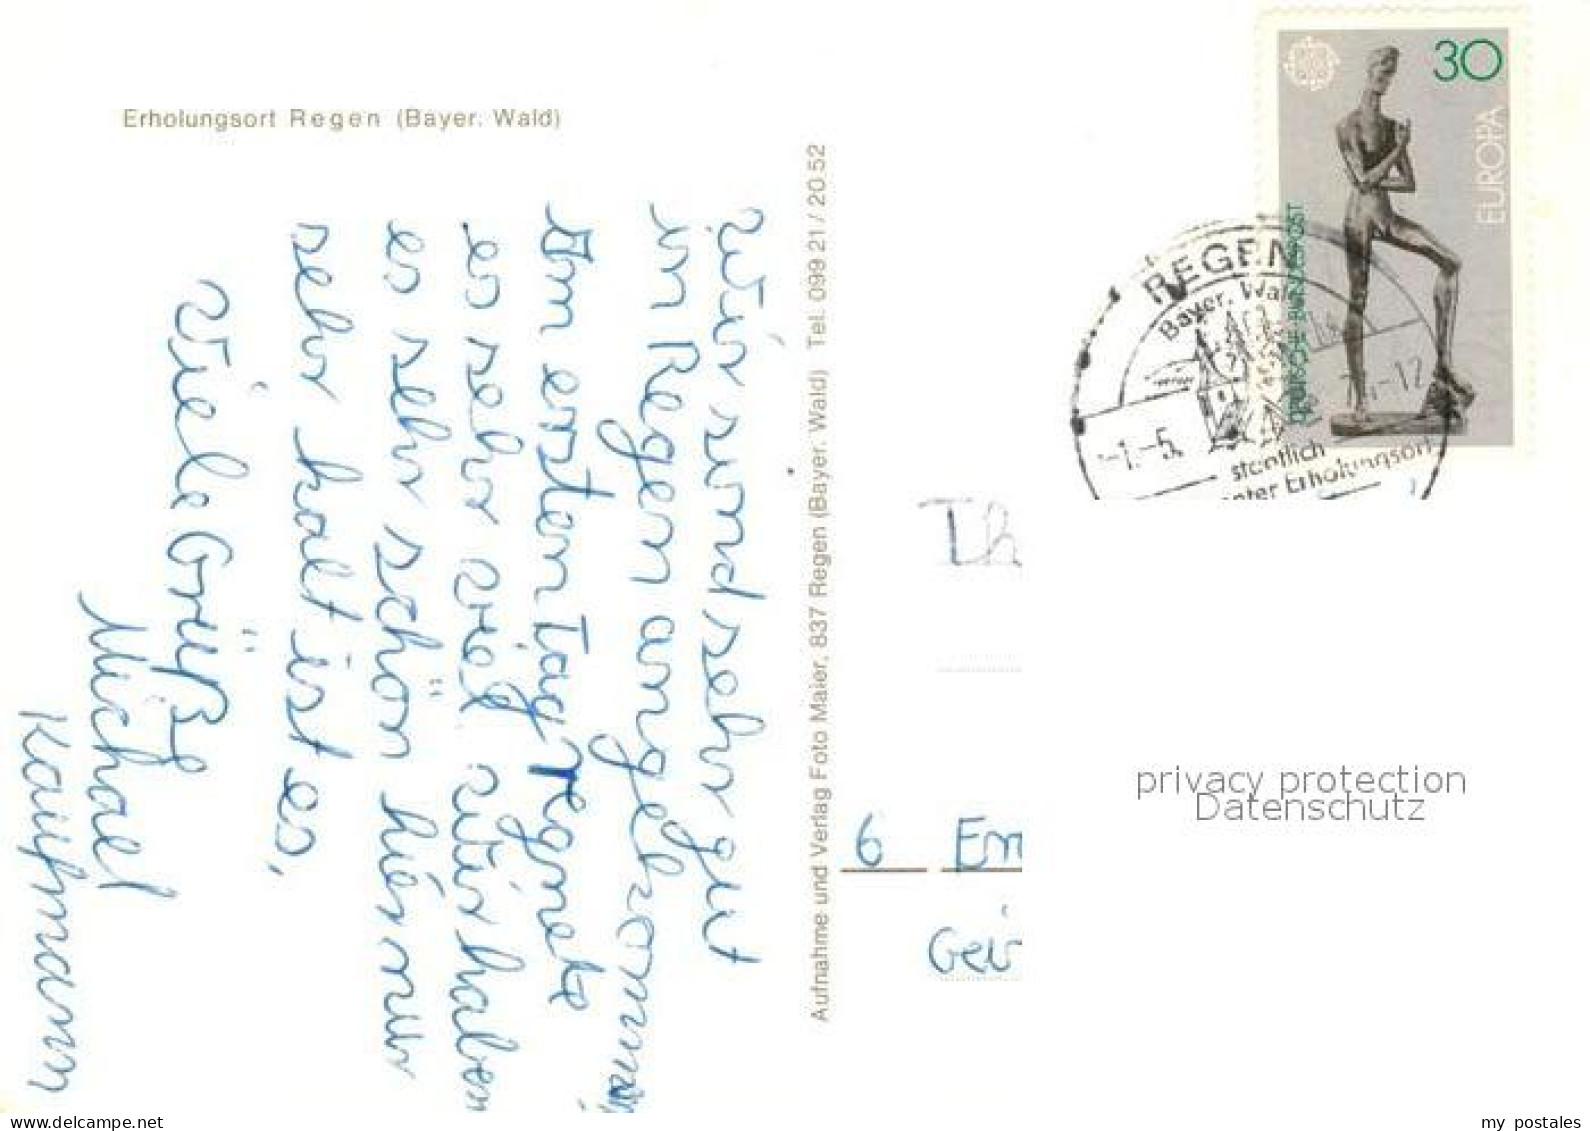 Erholungsort Regen (Bayer. Wald)
Wir sind sehr gut
in Regen angekommen
Am ersten Tag regnete
es sehr viel. Wir haben
es sehr schön hier nur
sehr kalt ist es,
Viele Grüße
Michael
Kaufmann
Aufnahme und Verlag Foto Maier, 837 Regen (Bayer. Wald) Tel. 099 21 / 20 52
30
EUROPA
DEUTSCHE BUNDESPOST
REGEN
Bayer. Wald
-1.-5.
-12
staatlich
Erholungsort
Th
6 Em
Gei
privacy protection
Datenschutz
www.delcampe.net
my_postales